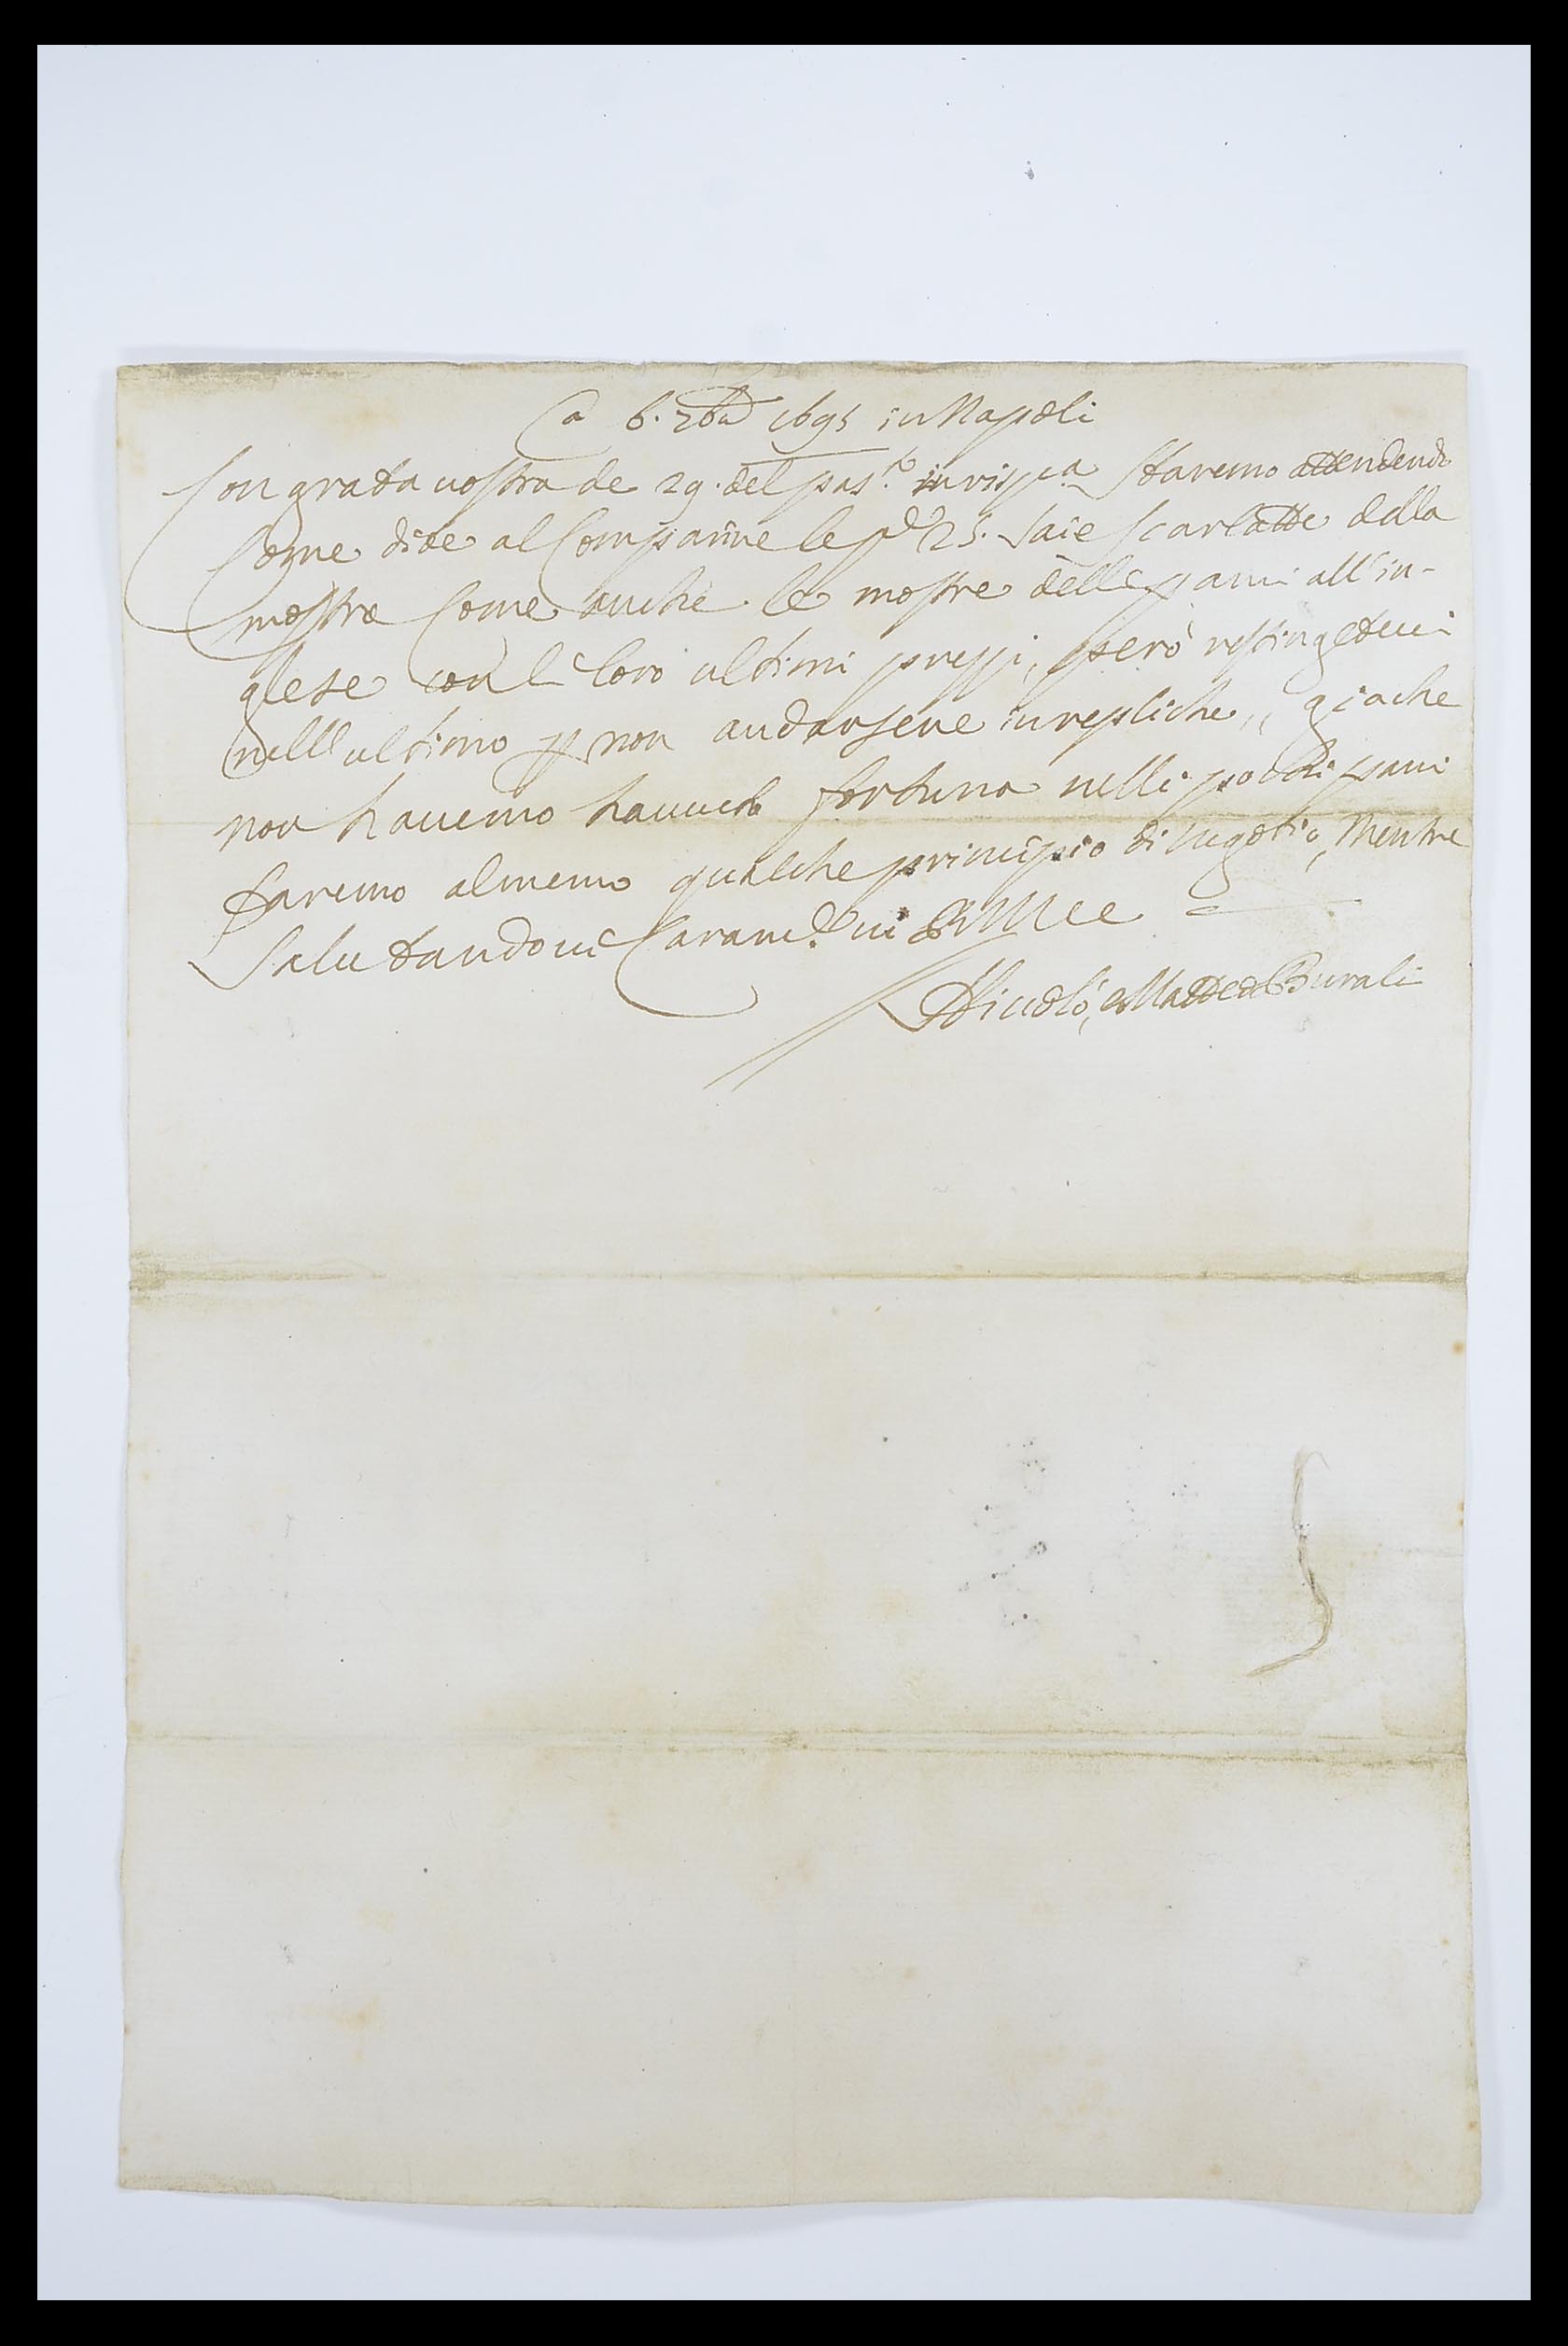 A 6. 7bre 1695 in Napoli
Con grata vostra de 29. del pas.to in risp.ta Staremo attendendo
Come dite al Comparire le pd. 25. Saie scarlatte della
mostra Come anche le mostre delle panni all'in-
glese con li loro ultimi prezzi, però restingetevi
nell'ultimo p non andarsene in repliche, giache
non havemo havuto fortuna nelli pochi pani
faremo almeno qualche principio di negotio, Mentre
Salutandovi Caram.te vi
Niccolò, e Matteo Burali